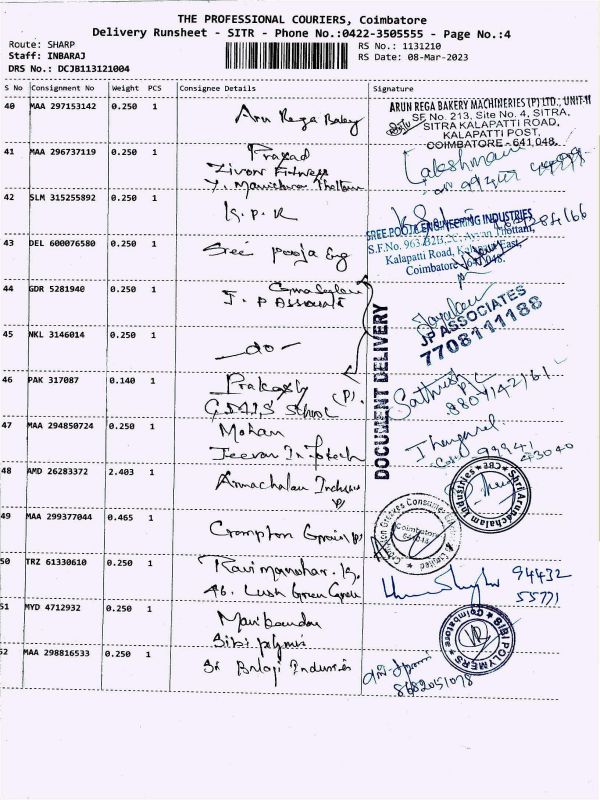 THE PROFESSIONAL COURIERS, Coimbatore
Delivery Runsheet - SITR - Phone No.:0422-3505555 - Page No.:4
Route: SHARP
Staff: INBARAJ
DRS No.: DCJB113121004
RS No.: 1131210
RS Date: 08-Mar-2023
S No Consignment No Weight PCS Consignee Details Signature
40 MAA 297153142 0.250 1 Arun Rega Bakery
ARUN REGA BAKERY MACHINERIES (P) LTD., UNIT-II
SF No. 213, Site No. 4, SITRA,
SITRA KALAPATTI ROAD,
KALAPATTI POST,
COIMBATORE - 641 048.
41 MAA 296737119 0.250 1 Prasad
Zivon Fitness
Lakshmanan
42 SLM 315255892 0.250 1 K. P. R
43 DEL 600076580 0.250 1 Sree Pooja Eng
SREE POOJA ENGINEERING INDUSTRIES
S.F.No. 963/B2B,2C, Ayyan Thottam,
Kalapatti Road, Kalapatti East,
Coimbatore - 641 048.
44 GDR 5281940 0.250 1
J. P Associate
JP ASSOCIATES
7708111188
45 NKL 3146014 0.250 1 -do-
DOCUMENT DELIVERY
46 PAK 317087 0.140 1 Prakash (P)
School
Sathish
47 MAA 294850724 0.250 1 Mohan
Jeevan Infotech
99941
43040
48 AMD 26283372 2.403 1 Arunachalam Indus
Shri Arunachalam Industries * CBE *
49 MAA 299377044 0.465 1 Crompton Greaves
Crompton Greaves Consumer
Coimbatore
641014
50 TRZ 61330610 0.250 1 Ravi manohar. K.
46. Lush Green
94432
55771
51 MYD 4712932 0.250 1 Manibandan
Sibi polymers
SIBI POLYMERS * Coimbatore *
52 MAA 298816533 0.250 1 Sri Balaji Industries
8682051078